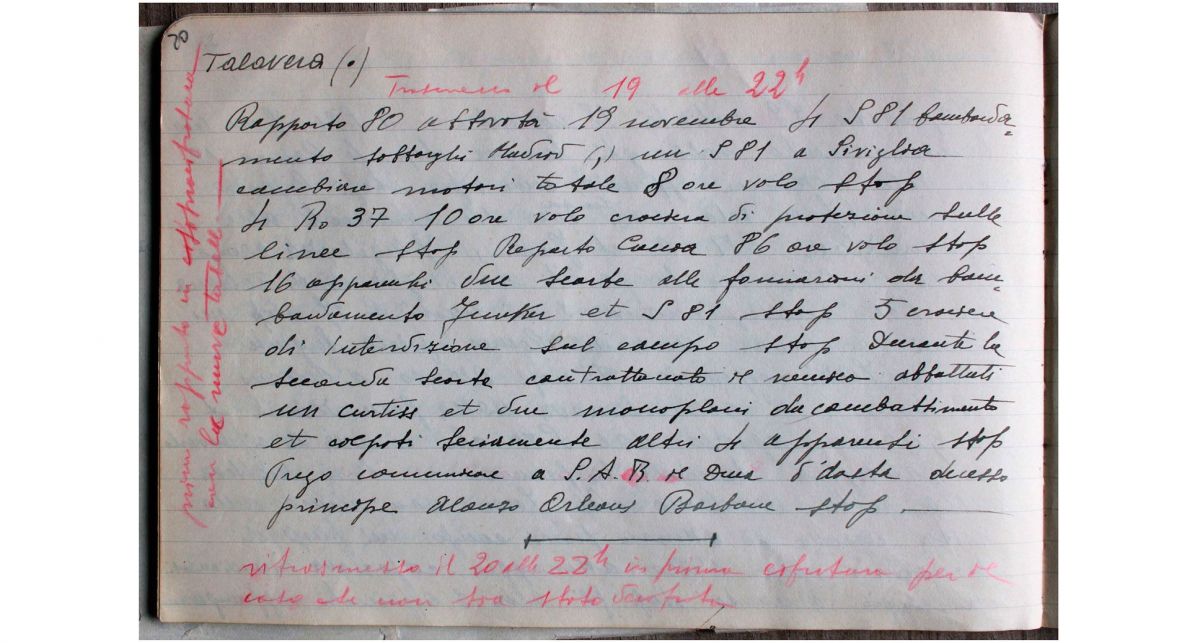 20
Talavera (.)
Trasmesso il 19 alle 22h
Rapporto 80 attività 19 novembre 4 S 81 bombarda=
mento sobborghi Madrid (,) un S 81 a Siviglia
cambiare motori totale 8 ore volo stop
4 Ro 37 10 ore volo crociera di protezione sulle
linee stop Reparto Caccia 86 ore volo stop
16 apparecchi due scorte alle formazioni da bom=
bardamento Junker et S 81 stop 5 crociere
di interdizione sul campo stop Durante la
seconda scorta contrattaccato il nemico abbattuti
un curtiss et due monoplani da combattimento
et colpiti seriamente altri 4 apparecchi stop
Prego comunicare a S.A.R. il Duca d'Aosta
principe Alonzo Orleans Borbone stop.
ritrasmesso il 20 alle 22h in prima cifratura per il
caso che non sia stato decifrato
primo rapporto in sopracifratura
con le nuove tabelle